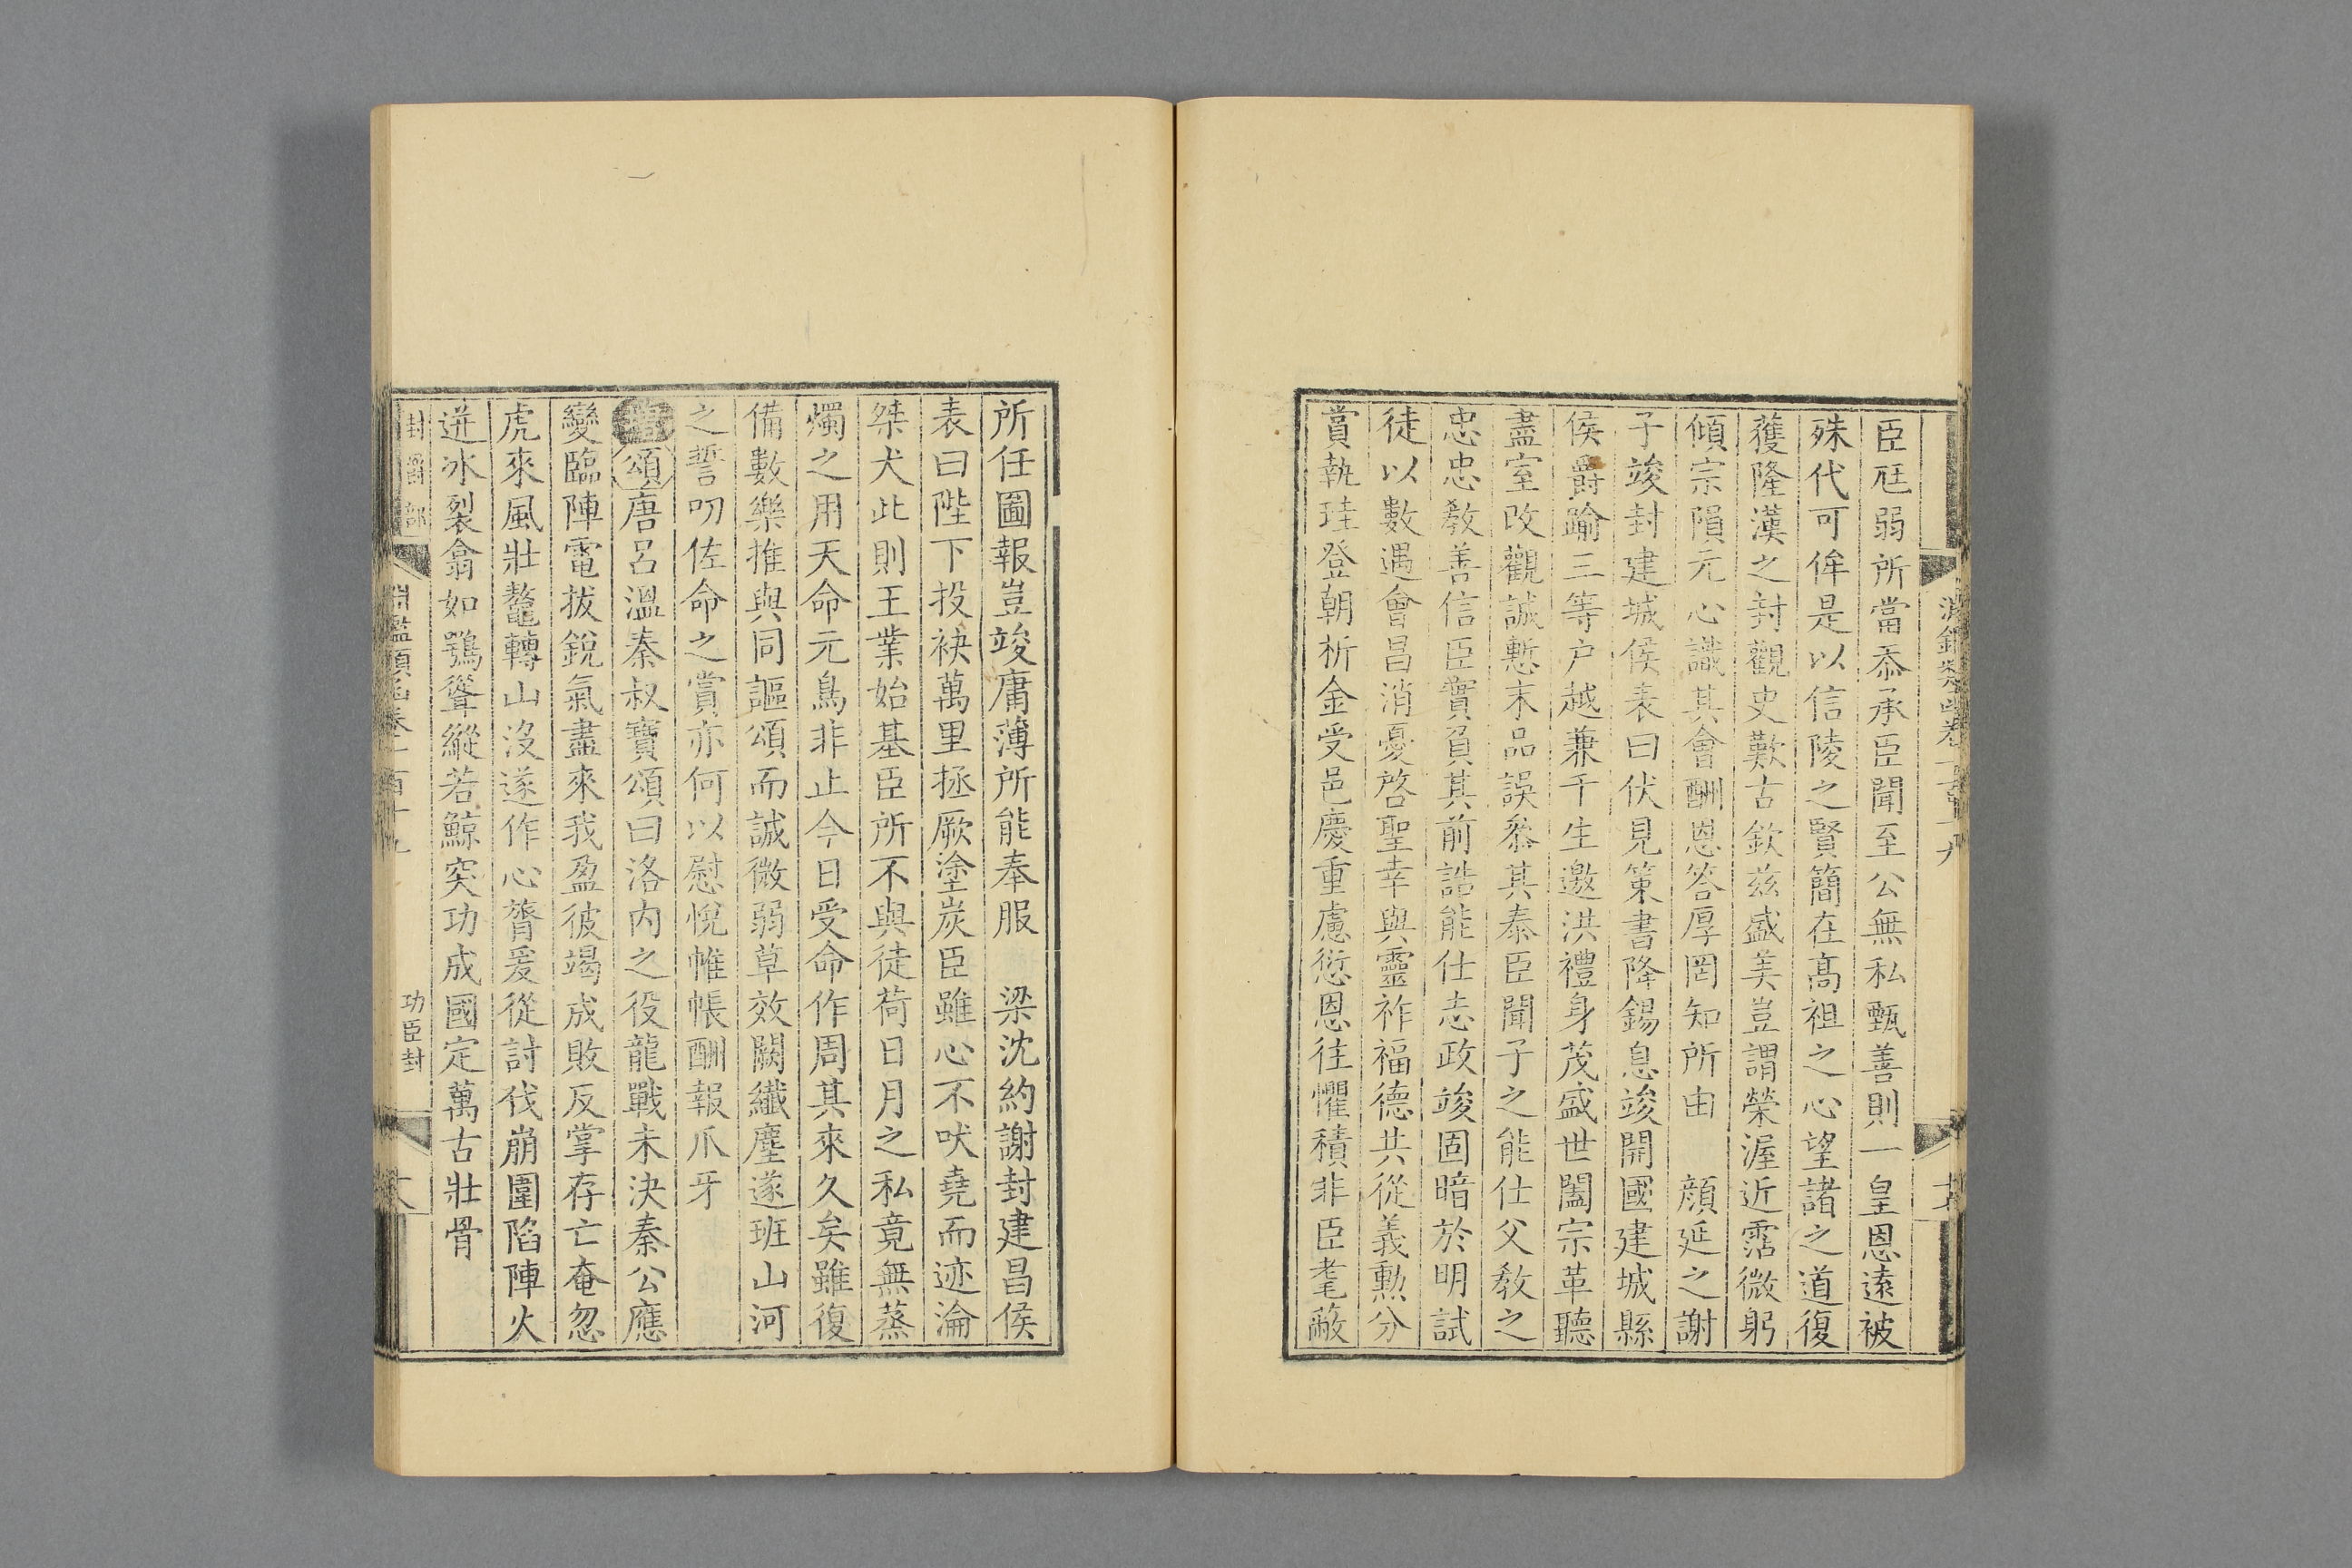 臣尫弱所當忝承臣聞至公無私甄善則一皇恩遠被
殊代可侔是以信陵之賢簡在髙祖之心望諸之道復
獲隆漢之封觀史歎古欽茲盛美豈謂榮渥近霑微躬
傾宗隕元心識其會酬恩答厚罔知所由　顔延之謝
子竣封建城侯表曰伏見策書降錫息竣開國建城縣
侯爵踰三等户越兼千生邀洪禮身茂盛世闔宗革聽
盡室改觀誠慙末品誤叅其泰臣聞子之能仕父教之
忠忠教善信臣實負其前誥能仕志政竣固暗於明試
徒以數遇會昌消憂啓聖幸與靈祚福德共從義勲分
賞執珪登朝析金受邑慶重慮愆恩往懼積非臣耄蔽
所任圖報豈竣庸薄所能奉服　梁沈約謝封建昌侯
表曰陛下投袂萬里拯厥塗炭臣雖心不吠堯而迹淪
桀犬此則王業始基臣所不與徒荷日月之私竟無蒸
燭之用天命元鳥非止今日受命作周其來久矣雖復
備數樂推與同謳頌而誠微弱草效闕纖塵遂班山河
之誓叨佐命之賞亦何以慰悅帷帳酬報爪牙
頌唐呂溫秦叔寶頌曰洛内之役龍戰未決秦公應
變臨陣電拔銳氣盡來我盈彼竭成敗反掌存亡奄忽
虎來風壯鼇轉山没遂作心膂爰從討伐崩圍陷陣火
迸冰裂翕如鶚聳縱若鯨突功成國定萬古壯骨
封爵部
淵鑑類函卷一百十九
功臣封